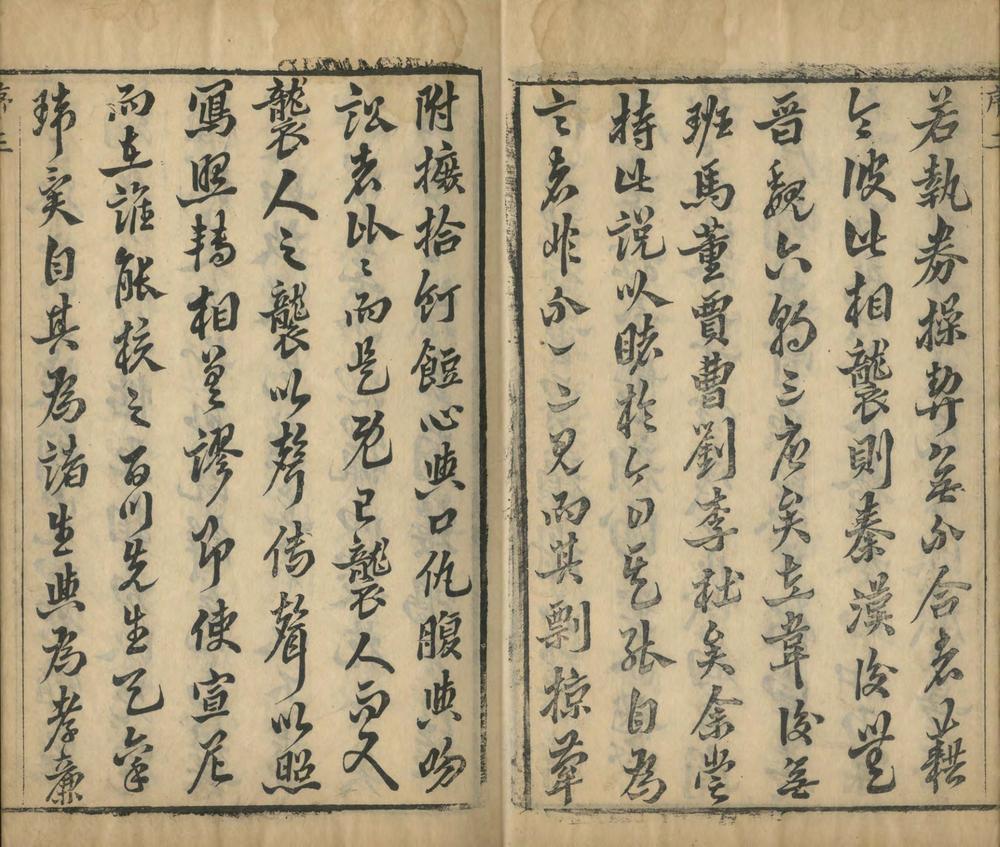 若執券操契無不合者藉
令彼此相襲則秦漢後無
晉魏六朝三唐矣左韋後無
班馬董賈曹劉李杜矣余嘗
持此說以睹於今日乏能自為
言者非不一二見而其剽掠草
附摭拾飣餖心與口仇腹與吻
訟者比比而是既已襲人而又
襲人之襲以聲傳聲以照
寫照轉相差謬即使宣尼
而在誰能核之百川先生已
瑋寔自其為諸生與為孝廉